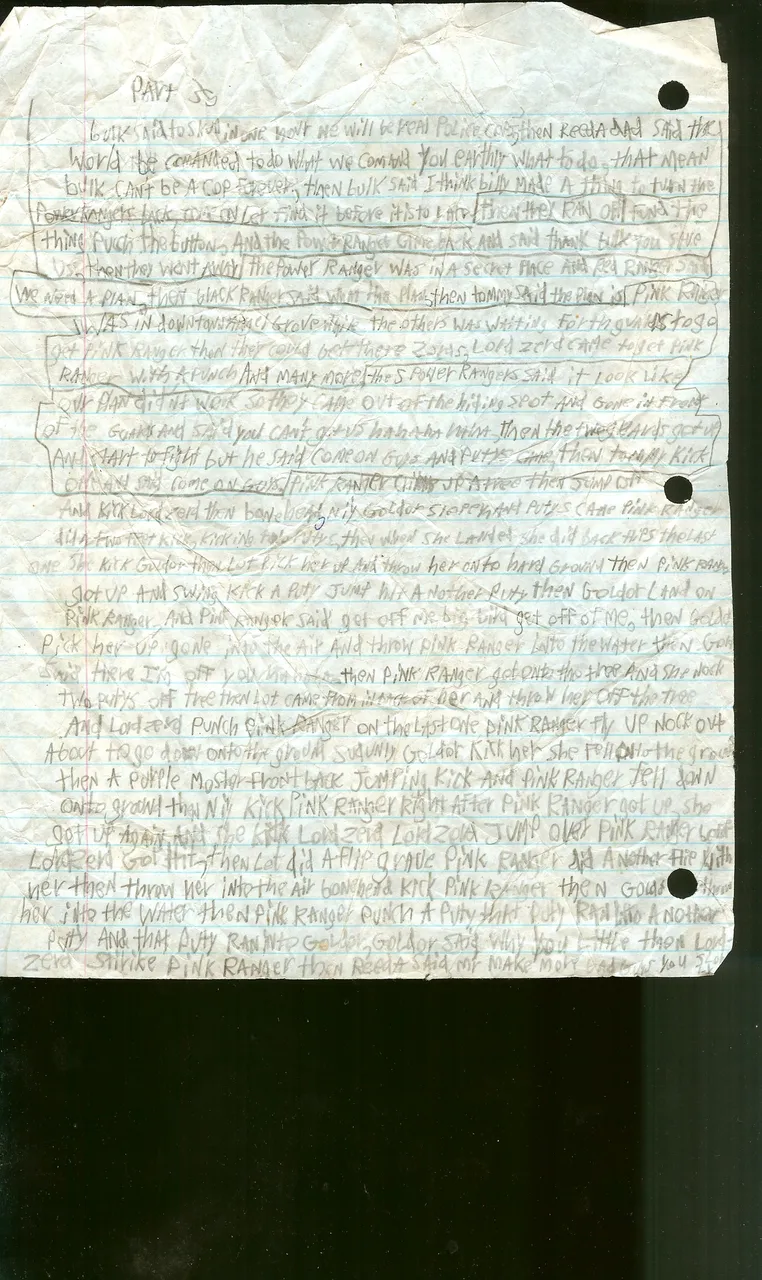 PArt 33
bulk said to skull in one hour we will be real Police cops, then ReedA dad said the
World be comanded to do what we comand you earthy what to do, that mean
bulk CAn't be A cop forever, then bulk said I think billy made A thing to turn the
Power Rangers back come on let find it before it is to late, then they RAN off fund the
thing Puch the button, And the Power RAnger Came back And said thank bulk you save
us, then they went AwAy, the Power RAnger was in A secret Place And Red Ranger said
We need A PLAN, then blAck RAnger said what the PLAN, then tommy said the PLAN is Pink RAnger
WAs in downtown Angel Grove while the others was waiting for the guards to go
get Pink RAnger then they could bett there Zords, Lord zerd CAMe to get Pink
RAnger with A Punch And MANy more, the 5 Power RAngers said it look Like
our PLAN didn't work so they CAMe out of the hiding spot And Gone in front
of the GuArds And said you CAn't get us hAhAhA, then the two guards got up
And stArt to fight but he said come on Guys And Putys CAMe, then tommy Kick
off And said come on Guys, Pink RAnger Climb uP A tree then JuMP off
And Kick Lord zerd then bonehead, Nij Goldor And Putys CAMe Pink RAnger
did A two feet Kick, Kicking two Putys, then when she LAnded she did bAck fliPs the LAst
one she Kick Goldor then Lot Pick her uP And throw her onto hArd Ground then Pink RANg
got uP And swing Kick A Puty JuMP hit Another Puty then Goldor LAnd on
Pink RAnger, And Pink RAnger said get off me big bird get off of me, then Gold
Pick her uP gone into the Air And throw Pink RAnger into the wAter then Gol
said here I'm off you hA hA, then Pink RAnger got onto the tree And she Nock
two Putys off the then Lot CAMe from in bAck of her And throw her off the tree
And Lord zerd Punch Pink RAnger on the LAst one Pink RAnger fly uP Nock out
About to go down onto the ground suddnly Goldor Kick her she fell onto the grou
then A PurPle Monster front bAck JuMPing Kick And Pink RAnger fell down
onto ground then Nij Kick Pink RAnger Right After Pink RAnger got uP, she
got uP AgAin, And she Kick Lord zerd Lord zerd JuMP over Pink RAnger
Lord zerd Got Hit, then Lot did A fliP Pink RAnger did Another fliP with
her then throw her into the Air bonehead Kick Pink RAnger then Gold
her into the WAter then Pink RAnger Punch A Puty that Puty RAn into Another
Puty And that Puty RAn into Goldor, Goldor said Why you Little then Lord
Zerd Strike Pink RAnger then ReedA said Mr MAke More you